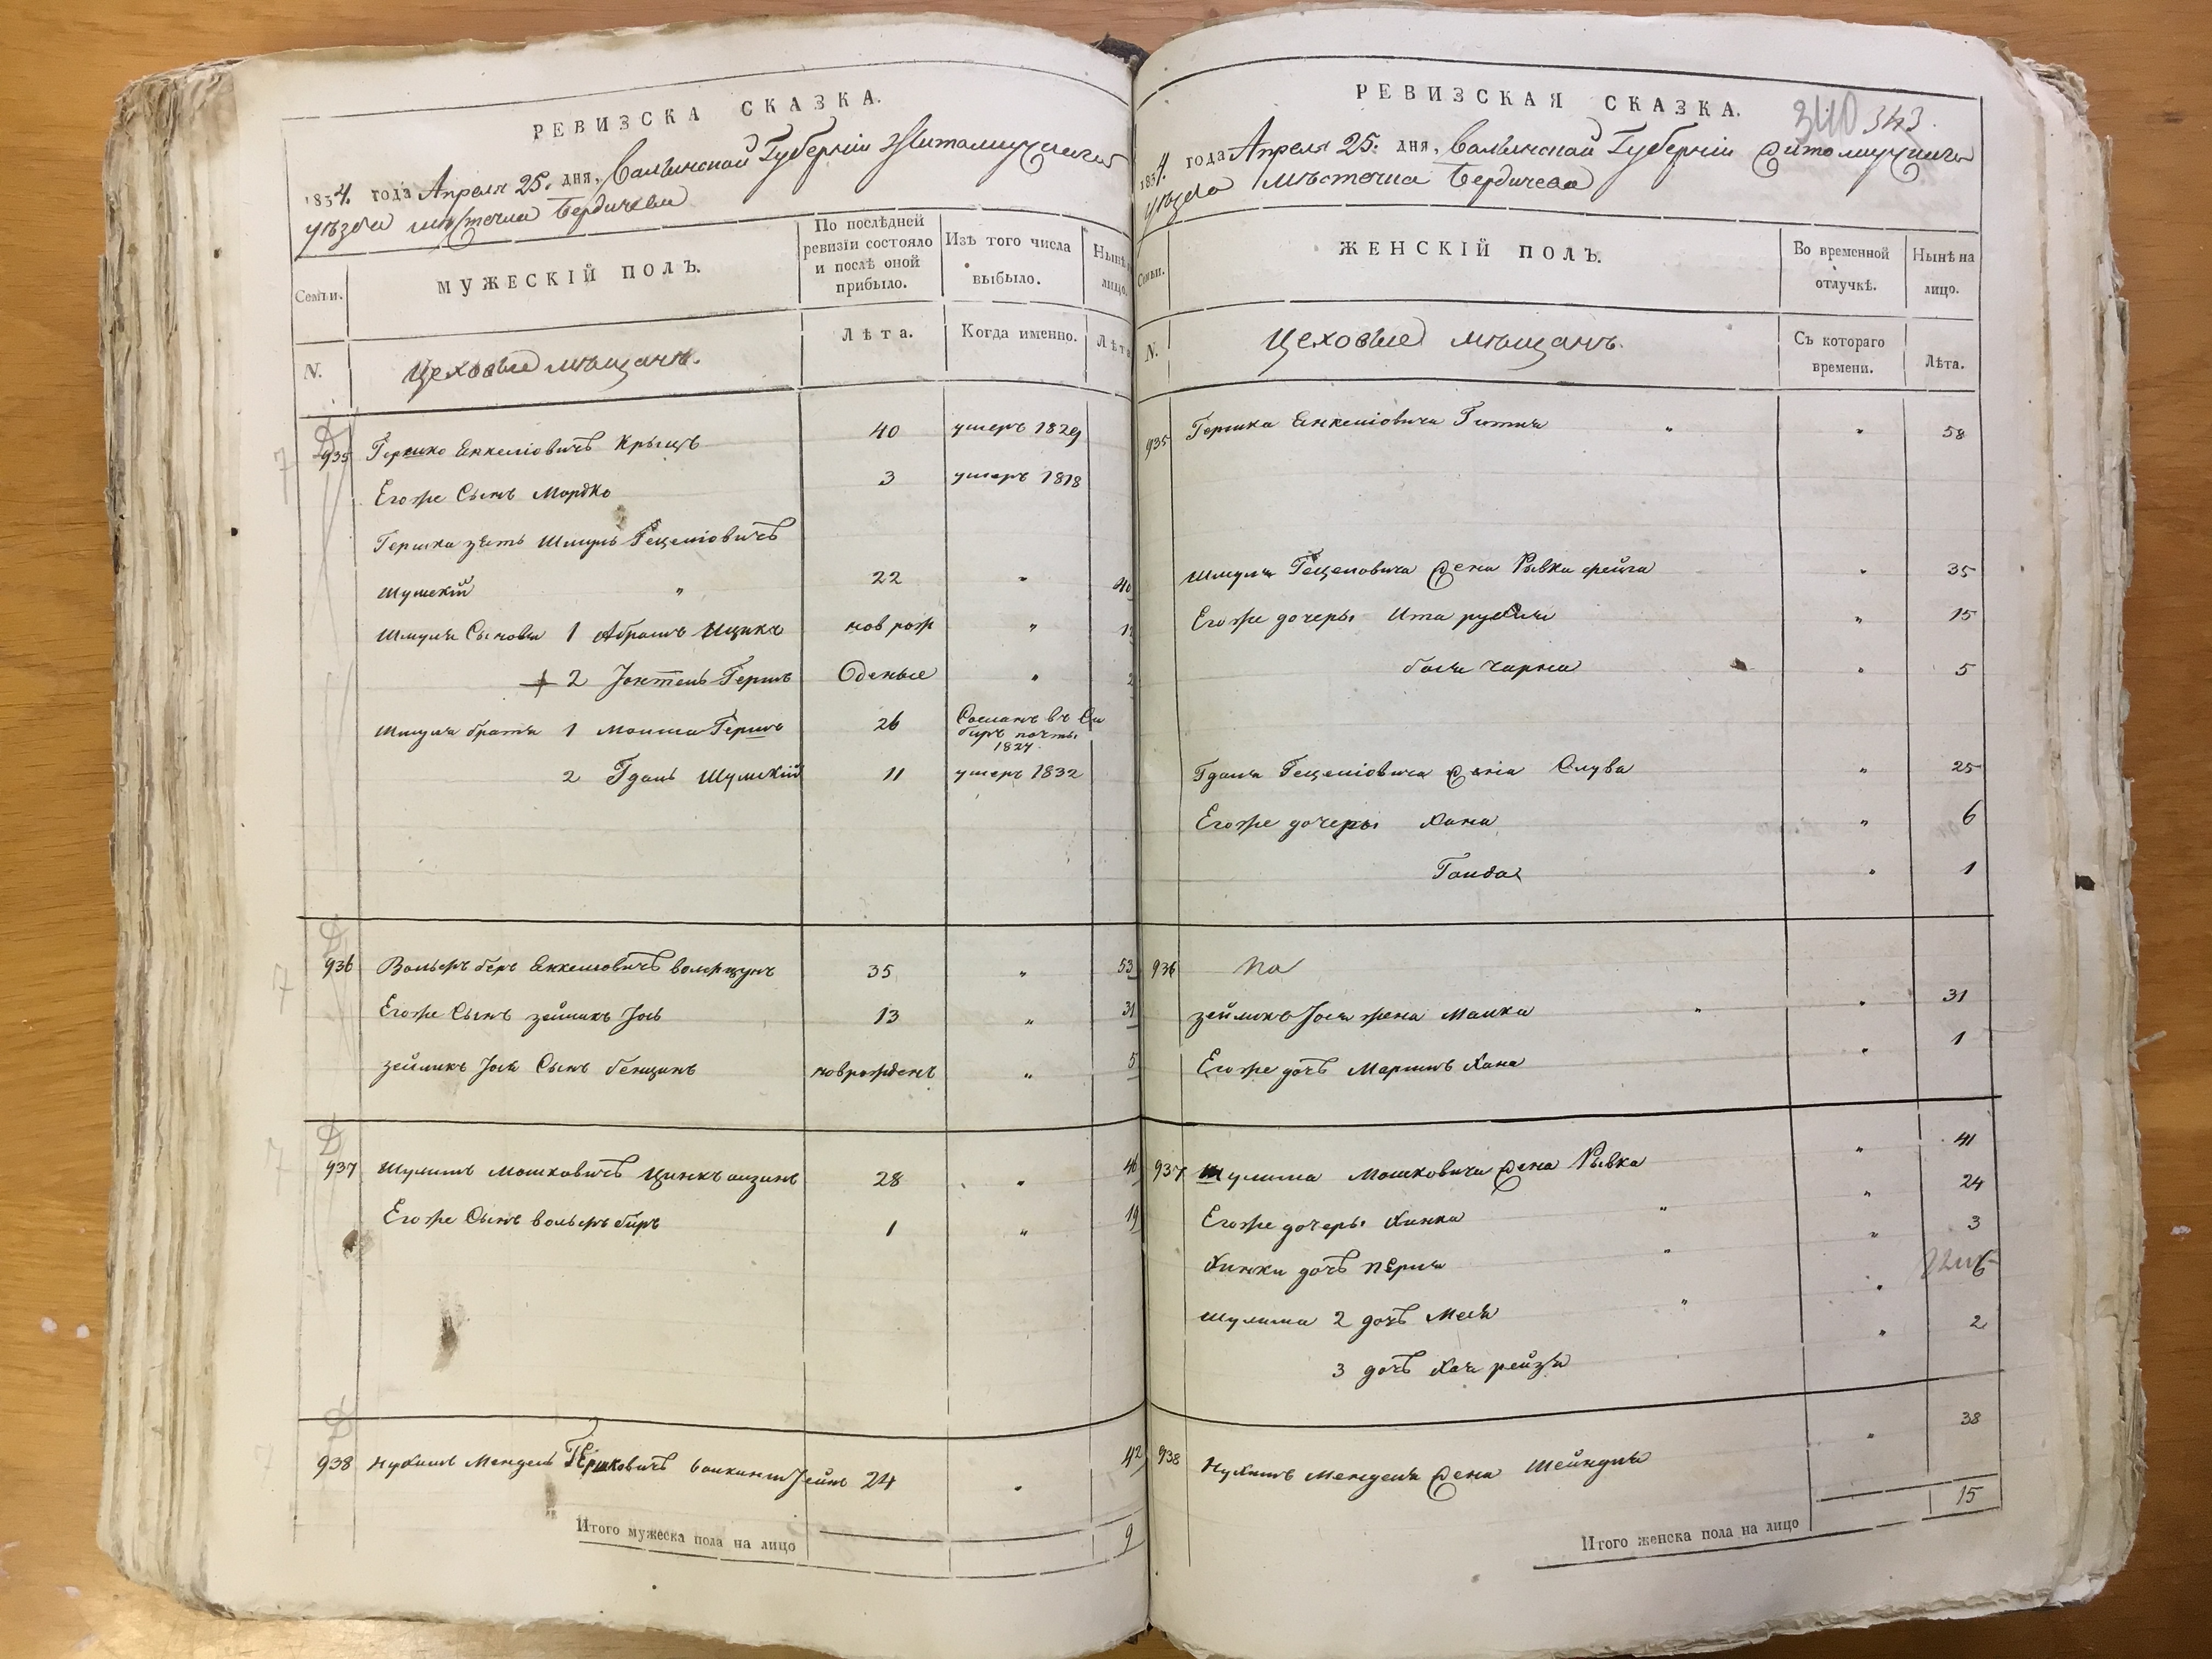 РЕВИЗСКА СКАЗКА.
1834. года Апреля 25. дня, Волынской Губернии Житомирскаго
уезда местечка Бердичева
Семьи.
МУЖЕСКІЙ ПОЛЪ.
По послѣдней
ревизіи состояло
и послѣ оной
прибыло.
Изъ того числа
выбыло.
Нынѣ
лицо.
N.
Цеховые мѣщанъ.
Лѣта.
Когда именно.
Лѣта
935 Гершко Енкелiовичъ Крыцъ 40 умеръ 1829
Егоже Сынъ Мордко 3 умеръ 1818
Гершка зять Шмуль Гецелiовичъ
Шумскій " 22 " 40
Шмуля Сыновья 1 Абрамъ Ицикъ нов рож "
2 Гершъ Оденые "
Шмуля братья 1 Мошка Гершъ 26 Сосланъ въ Си
бирь
1827.
2 Гдаль Шумскій 11 умеръ 1832
936 Вольфъ беръ Енкелiовичъ 35 " 53
Егоже Сынъ зейликъ Iось 13 " 31
зейликъ Iося Сынъ бенцинъ новрожденъ " 5
937 Шулимъ Мошковичъ 28 " 46
Егоже Сынъ вольфъ биръ 1 " 19
938 Нухимъ Мендель Гершковичъ 24 " 42
Итого мужеска пола на лицо 9
РЕВИЗСКАЯ СКАЗКА.
340 343.
1834. года Апреля 25. дня, Волынской Губернии Житомирскаго
уезда Местечка Бердичева
Семьи.
ЖЕНСКІЙ ПОЛЪ.
Во временной
отлучкѣ.
Нынѣ на
лицо.
N.
Цеховые мѣщанъ.
Съ котораго
времени.
Лѣта.
935 Гершка Енкелiовича Гитля " " 58
Шмуля Гецеловича жена Рывка фейга " 35
Егоже дочеры Ита рухля " 15
бася чарна " 5
Гдаля Гецелiовича жена Слува " 25
Егоже дочеры Хана " 6
" 1
936
зейликъ Iося жена Малка " " 31
Егоже дочь Маримъ Хана " 1
937 Шулима Мошковича жена Рывка " 41
Егоже дочеры Хинка " " 24
Хинки дочь перля " " 3
Шулима 2 дочь Меля " " 6
3 дочь Хая рейзя " 2
938 Нухимъ Менделя жена Шейндля " 38
Итого женска пола на лицо 15